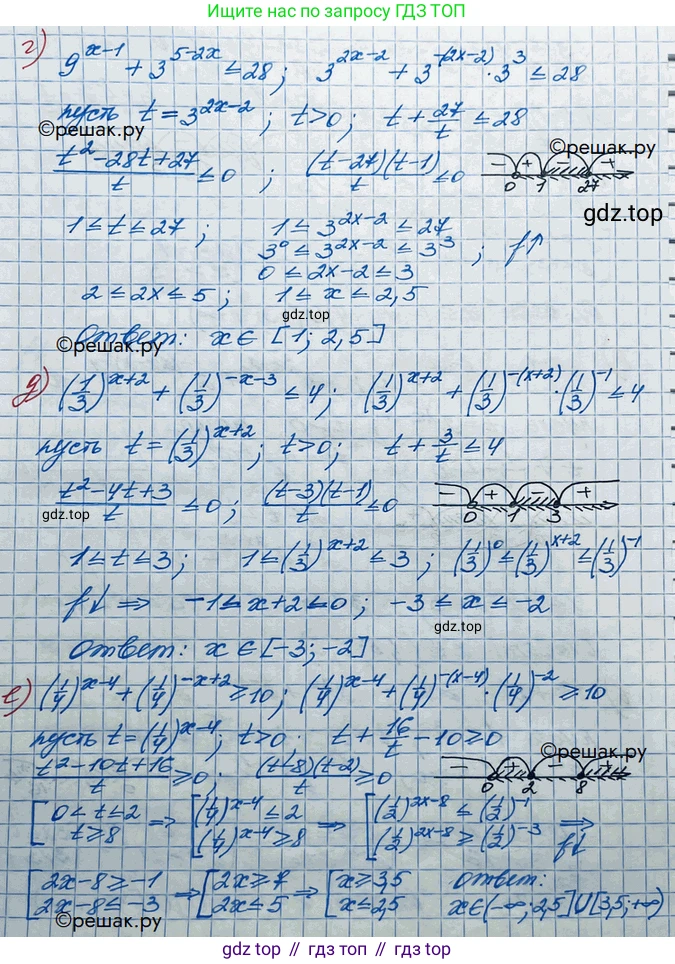 Ищите ответы по запросу ГДЗ ТОП
г) 9^(x-1) + 3^(5-2x) ≤ 28; 3^(2x-2) + 3^(-(2x-2)) · 3^3 ≤ 28
пусть t = 3^(2x-2); t>0; t + 27/t ≤ 28
©решак.ру
©решак.ру
(t^2-28t+27)/t ≤ 0; ((t-27)(t-1))/t ≤ 0 − + − + 0 1 27
gdz.top
1 ≤ t ≤ 27; 1 ≤ 3^(2x-2) ≤ 27
3^0 ≤ 3^(2x-2) ≤ 3^3; f↑
0 ≤ 2x-2 ≤ 3
2 ≤ 2x ≤ 5; 1 ≤ x ≤ 2,5
gdz.top
Ответ: x ∈ [1; 2,5]
©решак.ру
д) (1/3)^(x+2) + (1/3)^(-x-3) ≤ 4; (1/3)^(x+2) + (1/3)^(-(x+2)) · (1/3)^(-1) ≤ 4
пусть t = (1/3)^(x+2); t>0; t + 3/t ≤ 4
(t^2-4t+3)/t ≤ 0; ((t-3)(t-1))/t ≤ 0 − + − + 0 1 3
gdz.top
1 ≤ t ≤ 3; 1 ≤ (1/3)^(x+2) ≤ 3; (1/3)^0 ≤ (1/3)^(x+2) ≤ (1/3)^(-1)
f↓ ⇒ -1 ≤ x+2 ≤ 0; -3 ≤ x ≤ -2
gdz.top
Ответ: x ∈ [-3; -2]
е) (1/4)^(x-4) + (1/4)^(-x+2) ≥ 10; (1/4)^(x-4) + (1/4)^(-(x-4)) · (1/4)^(-2) ≥ 10
пусть t = (1/4)^(x-4); t>0 · t + 16/t - 10 ≥ 0
©решак.ру
(t^2-10t+16)/t ≥ 0; ((t-8)(t-2))/t ≥ 0 − + − + 0 2 8
[0 < t ≤ 2 ⇒ [(1/4)^(x-4) ≤ 2 ⇒ [(1/2)^(2x-8) ≤ (1/2)^(-1) ⇒
t ≥ 8 (1/4)^(x-4) ≥ 8 (1/2)^(2x-8) ≥ (1/2)^(-3) f↓
[2x-8 ≥ -1 ⇒ [2x ≥ 7 ⇒ [x ≥ 3,5 Ответ:
2x-8 ≤ -3 2x ≤ 5 x ≤ 2,5 x ∈ (-∞; 2,5] U [3,5; +∞)
©решак.ру
gdz.top // гдз.топ // gdz.top